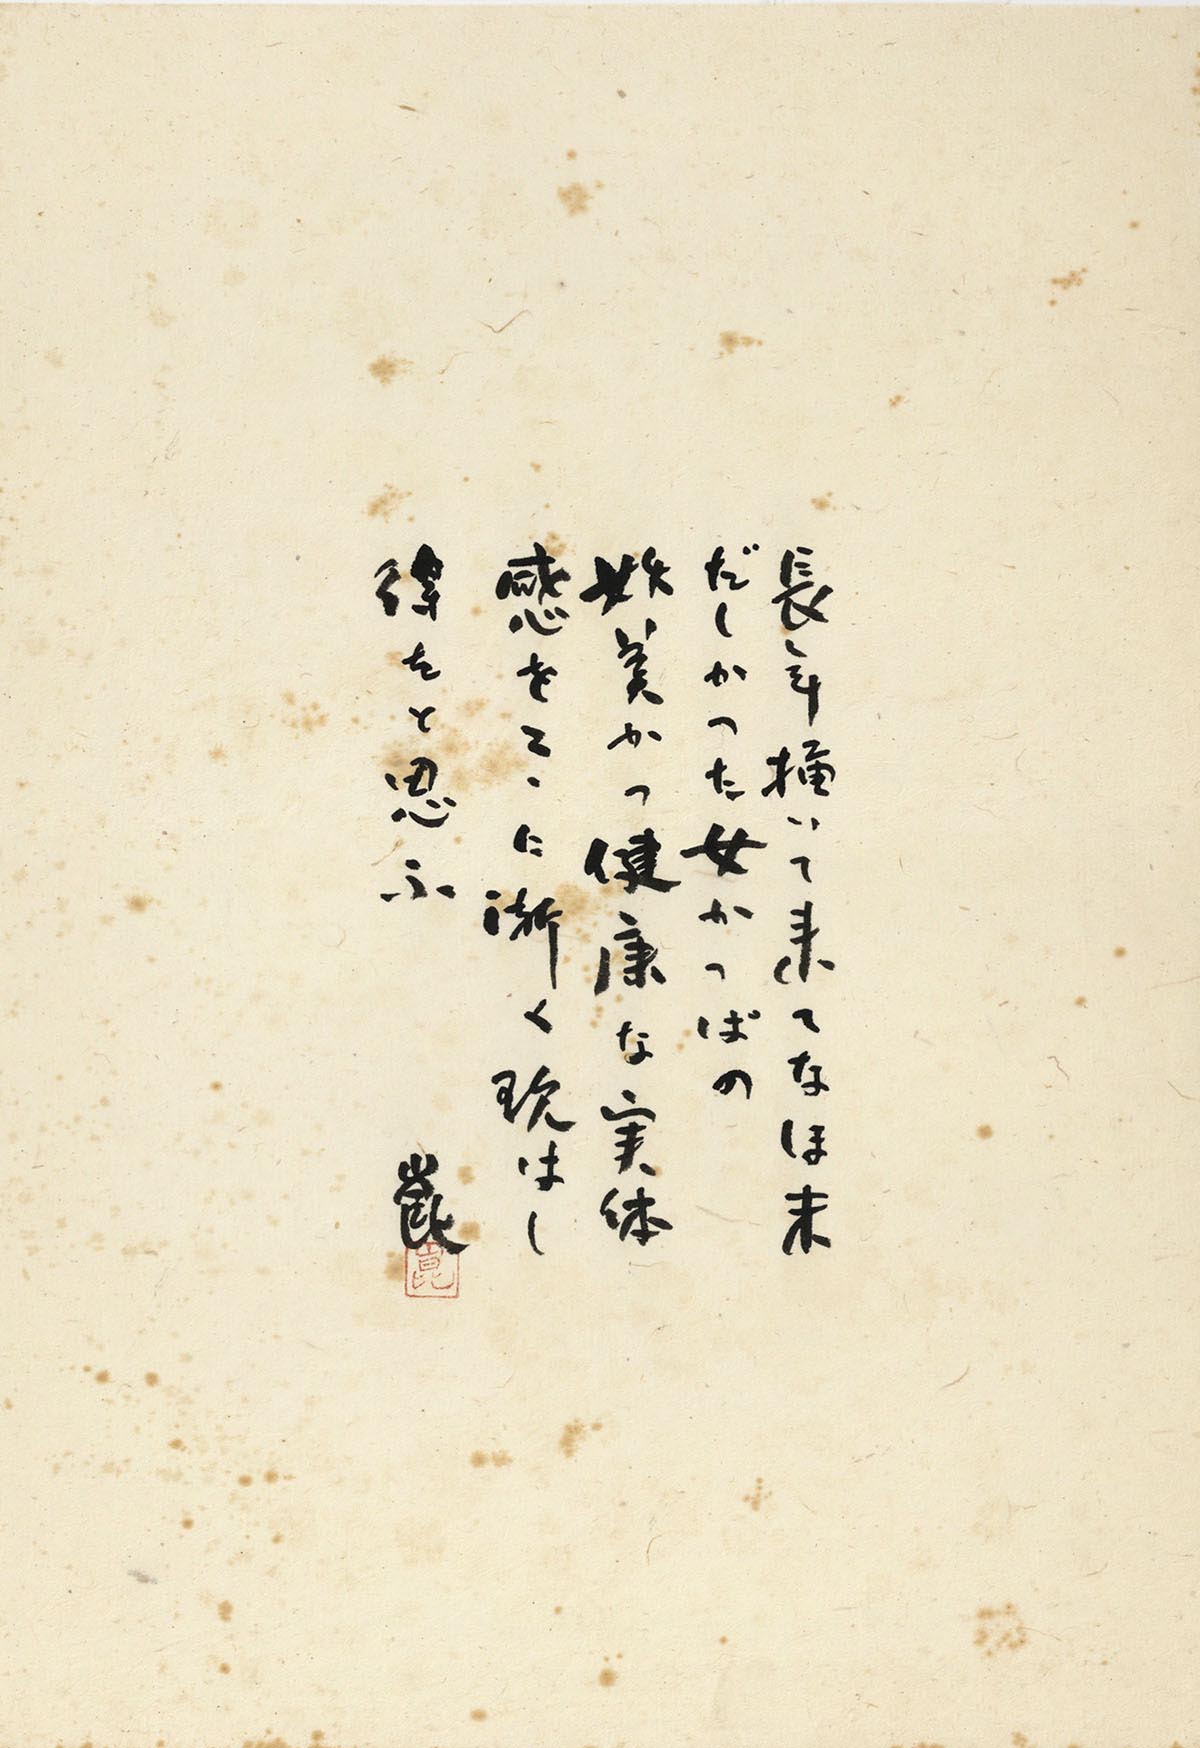 長年描いて来てなほ未
だしかつた女かつぱの
妖美かつ健康な実体
感をこゝに漸く現はし
得たと思ふ
崑
崑